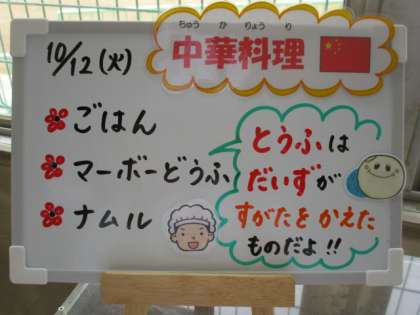 10/12(火)
ちゅうかりょうり
中華料理
ごはん
マーボーどうふ
ナムル
とうふは
だいずが
すがたをかえた
ものだよ!!